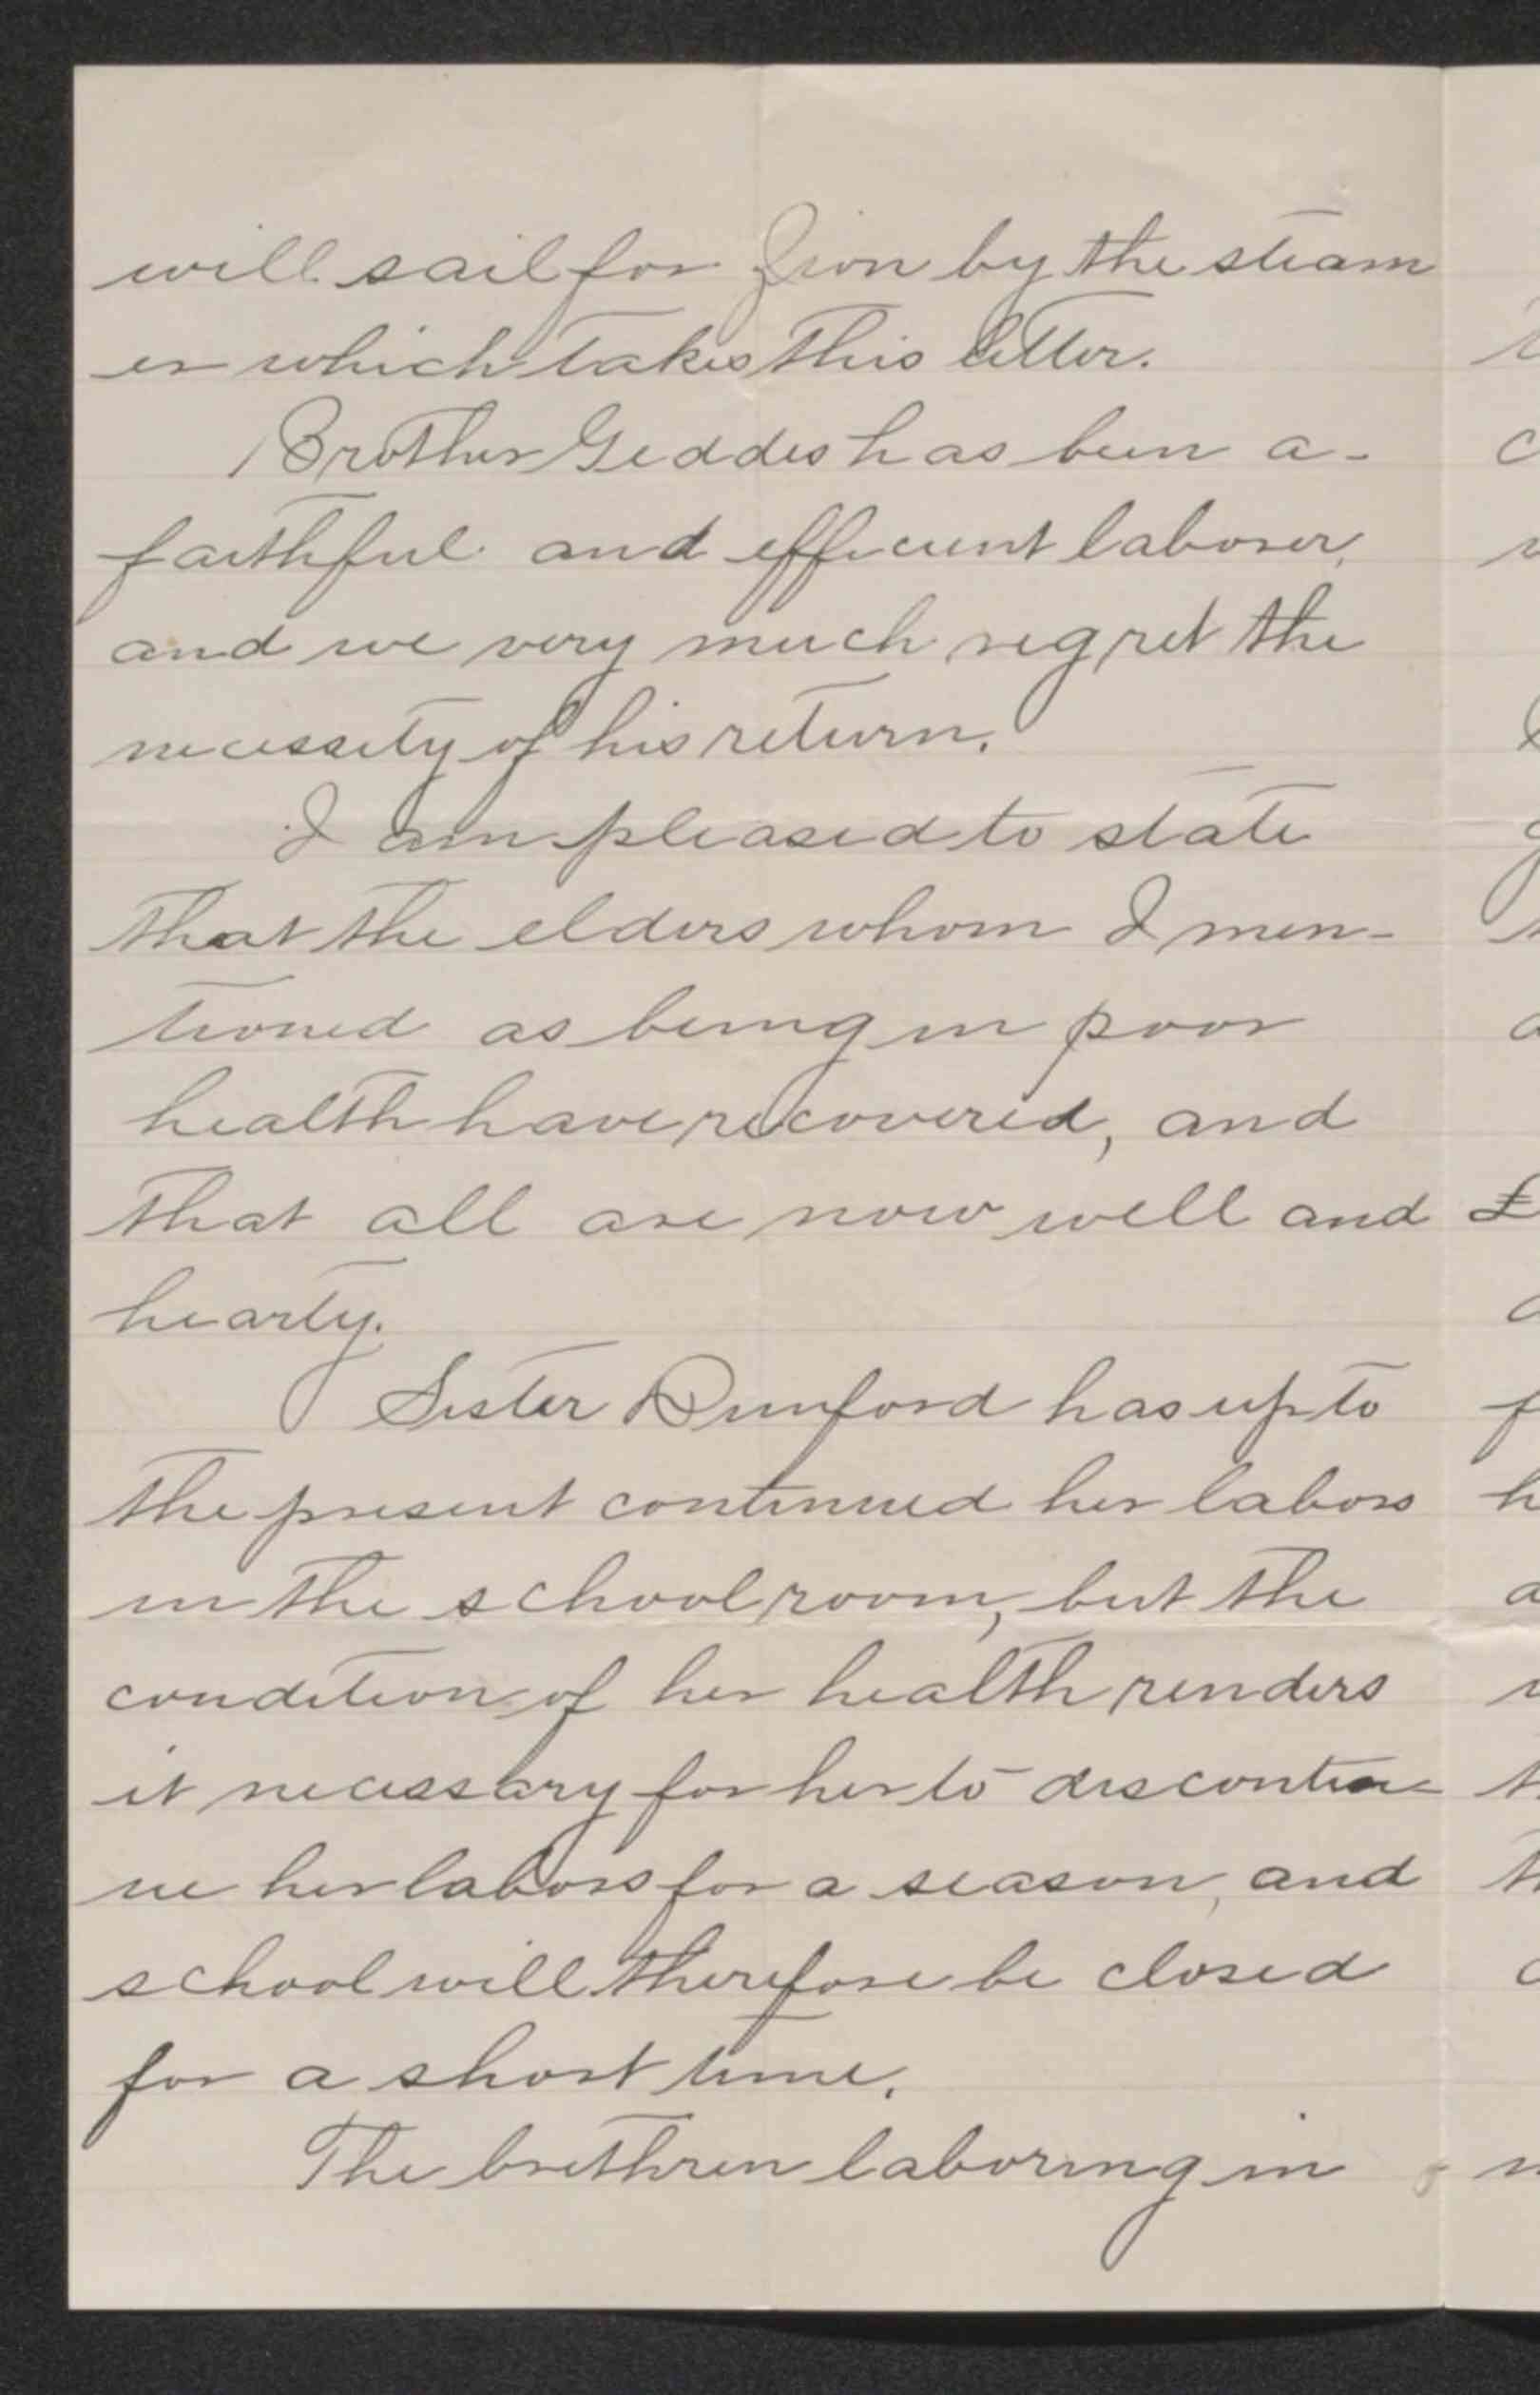 will sail for Zion by the steam
er which takes this letter.
Brother Geddes has been a-
faithful and efficient laborer,
and we very much regret the
necessity of his return.
I am pleased to state
that the elders whom I men-
tioned as being in poor
health have recovered, and
that all are now well and
hearty.
Sister Dunford has up to
the present continued her labors
in the school room, but the
condition of her health renders
it necessary for her to discontin-
ue her labors for a season, and
school will therefore be closed
for a short time.
The brethren laboring in